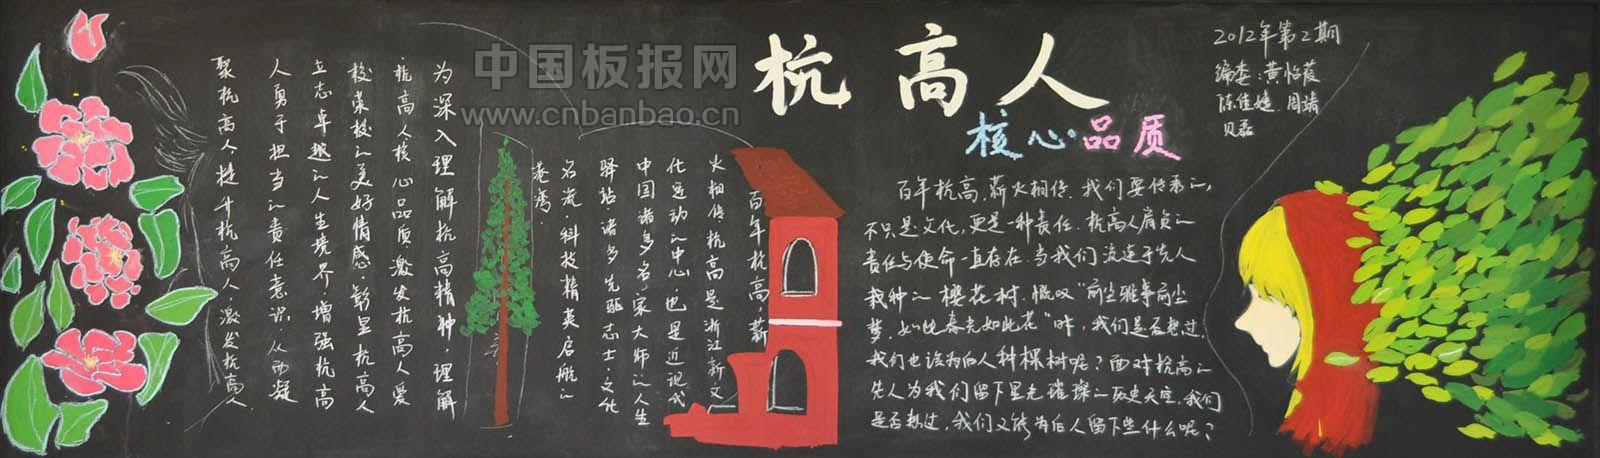 中国板报网
www.cnbanbao.cn
杭高人
核心品质
2012年第2期
编委：黄怡葭
陈佳婕 周靖
贝磊
百年杭高，薪火相传。我们要传承的，
不只是文化，更是一种责任。杭高人肩负的
责任与使命一直存在。当我们流连于先人
栽种的樱花树，慨叹“前尘雅事前尘
梦，如此春光如此花”时，我们是否想过，
我们也该为后人种棵树呢？面对杭高的
先人为我们留下星光璀璨的历史天空，我们
是否想过，我们又能为后人留下些什么呢？
百年杭高，薪
火相传杭高是浙江新文
化运动的中心，也是近现代
中国诸多名家大师的人生
驿站，诸多先驱志士、文化
名流、科技精英启航的
港湾
为深入理解杭高精神，理解
杭高人核心品质，激发杭高人爱
校荣校的美好情感，彰显杭高人
立志卓越的人生境界，增强杭高
人勇于担当的责任意识，从而凝
聚杭高人，提升杭高人，激发杭高人